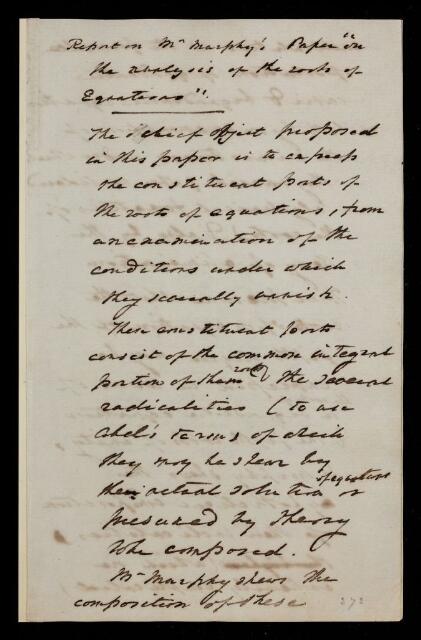 Report on Mr Murphy's Paper "on
the analysis of the roots of
Equations".
The chief object proposed
in this paper is to express
the constituent parts of
the roots of equations, from
an examination of the
conditions under which
they severally vanish.
These constituent parts
consist of the common integral
portion of the roots & the several
radicalities (to use
Abel's terms of which
they may be shewn by
their actual solution of equations or
presumed by theory
to be composed.
Mr Murphy shews the
composition of these
272